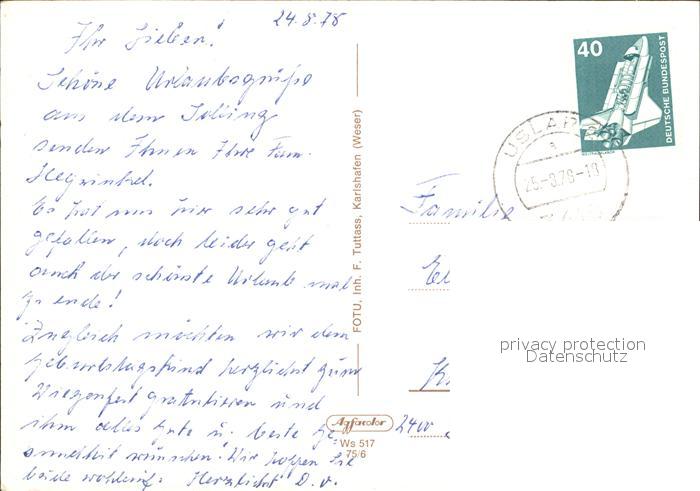 24.8.78
Ihr Lieben!
Schöne Urlaubsgrüße
aus dem Solling
senden Ihnen Ihre Fam.
Hegwinkel.
Es hat uns hier sehr gut
gefallen, doch leider geht
auch der schönste Urlaub mal
zu ende!
Zugleich möchten wir dem
Geburtstagskind herzlichst zum
Wiegenfest gratulieren und
ihm alles Gute u. beste Ge-
sundheit wünschen. Wir hoffen Sie
beide wohlauf. Herzlichst D. O.
FOTU, Inh. F. Tuttass, Karlshafen (Weser)
Agfacolor
Ws 517
75/6
40
DEUTSCHE BUNDESPOST
USLAR
Familie
2400
privacy protection
Datenschutz